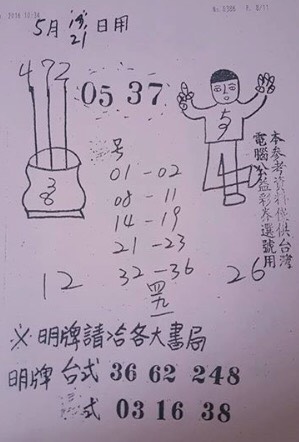 No.0306 P. 8/11
5月19/21日用
472
05 37
号
01-02
08-11
14-19
21-23
32-36
本參考資料僅供台灣
電腦公益彩券選號用
12
26
※明牌請洽各大書局
明牌 台式 36 62 248
式 03 16 38